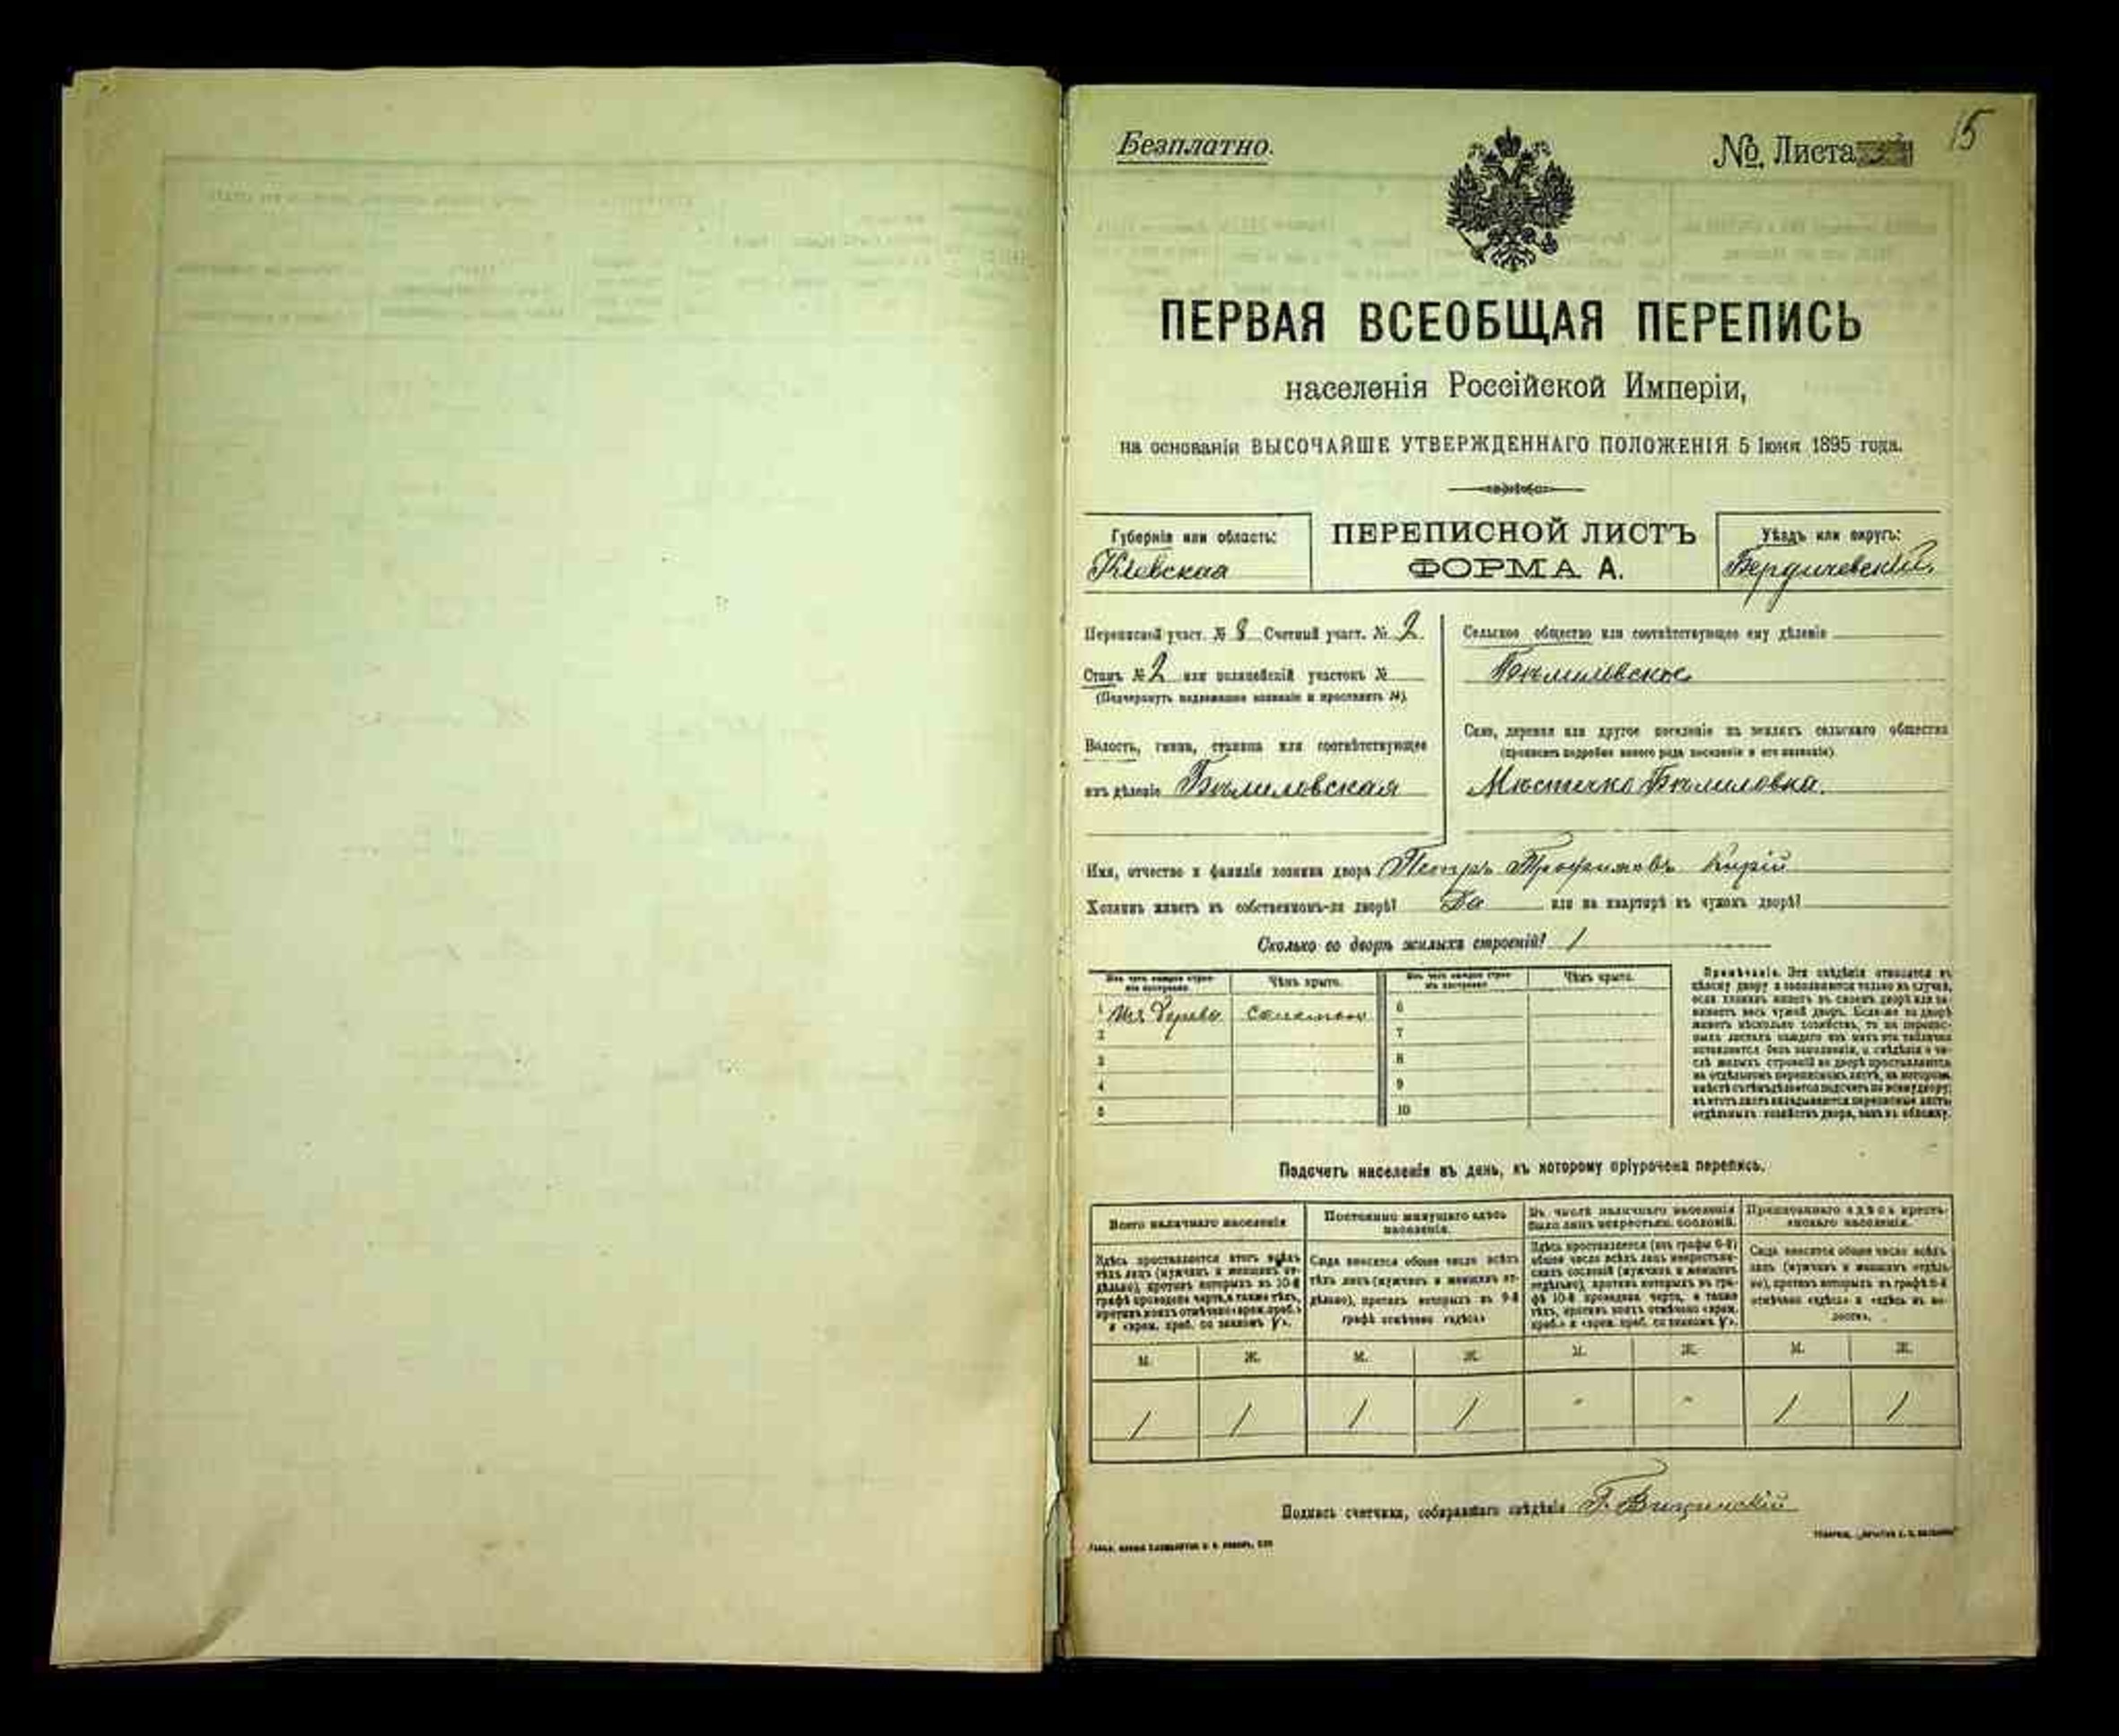 15
Безплатно.
№ Листа
ПЕРВАЯ ВСЕОБЩАЯ ПЕРЕПИСЬ
населенія Россійской Имперіи,
на основаніи ВЫСОЧАЙШЕ УТВЕРЖДЕННАГО ПОЛОЖЕНІЯ 5 Іюня 1895 года.
Губернія или область:
Кіевская
ПЕРЕПИСНОЙ ЛИСТЪ
ФОРМА А.
Уѣздъ или округъ:
Бердичевскій
Переписной участ. № 8 Счетный участ. № 2
Станъ № 2 или полицейскій участокъ №
(Подчеркнуть надлежащее названіе и проставить №).
Волость, гмина, станица или соотвѣтствующее
имъ дѣленіе Бѣлиловская
Сельское общество или соотвѣтствующее ему дѣленіе
Бѣлиловское
Село, деревня или другое поселеніе на земляхъ сельскаго общества
(прописать подробно какого рода поселеніе и его названіе)
Мѣстечко Бѣлиловка.
Имя, отчество и фамилія хозяина двора Петръ Трофимовъ Кирій
Хозяинъ живетъ въ собственномъ-ли дворѣ? Да или на квартирѣ въ чужомъ дворѣ?
Сколько во дворѣ жилыхъ строеній? 1
Изъ чего каждое строеніе построено Чѣмъ крыто. Изъ чего каждое строеніе построено Чѣмъ крыто.
1 Изъ дерева соломою 6
2 7
3 8
4 9
5 10
Примѣчаніе. Эти свѣдѣнія относятся къ
цѣлому двору и заполняются только въ случаѣ,
если хозяинъ живетъ въ своемъ дворѣ или за-
нимаетъ весь чужой дворъ. Если-же во дворѣ
живетъ нѣсколько хозяйствъ, то на перепис-
ныхъ листахъ каждаго изъ нихъ эта табличка
оставляется безъ заполненія, а свѣдѣнія о чи-
слѣ жилыхъ строеній во дворѣ проставляются
на отдѣльномъ переписномъ листѣ, на которомъ
вмѣстѣ съ тѣмъ дѣлается подсчетъ по всему двору;
въ этотъ листъ вкладываются переписные листы
отдѣльныхъ хозяйствъ двора, какъ въ обложку.
Подсчетъ населенія въ день, къ которому пріурочена перепись.
Всего наличнаго населенія
Здѣсь проставляется итогъ всѣхъ
тѣхъ лицъ (мужчинъ и женщинъ от-
дѣльно), противъ которыхъ въ 10-й
графѣ проведена черта, а также тѣхъ,
противъ коихъ отмѣчено «врем. преб.»
и «врем. преб. со знакомъ V».
Постоянно живущаго здѣсь
населенія.
Сюда вносится общее число всѣхъ
тѣхъ лицъ (мужчинъ и женщинъ от-
дѣльно), противъ которыхъ въ 9-й
графѣ отмѣчено «здѣсь»
Въ числѣ наличнаго населенія
было лицъ некрестьян. сословій.
Здѣсь проставляется (изъ графы 6-й)
общее число всѣхъ лицъ некрестьян-
скихъ сословій (мужчинъ и женщинъ
отдѣльно), противъ которыхъ въ гра-
фѣ 10-й проведена черта, а также
тѣхъ, противъ коихъ отмѣчено «врем.
преб.» и «врем. преб. со знакомъ V».
Приписаннаго здѣсь кресть-
янскаго населенія.
Сюда вносится общее число всѣхъ
лицъ (мужчинъ и женщинъ отдѣль-
но), противъ которыхъ въ графѣ 8-й
отмѣчено «здѣсь» и «здѣсь въ во-
лости».
М. Ж. М. Ж. М. Ж. М. Ж.
1 1 1 1 " " 1 1
Подпись счетчика, собиравшаго свѣдѣнія